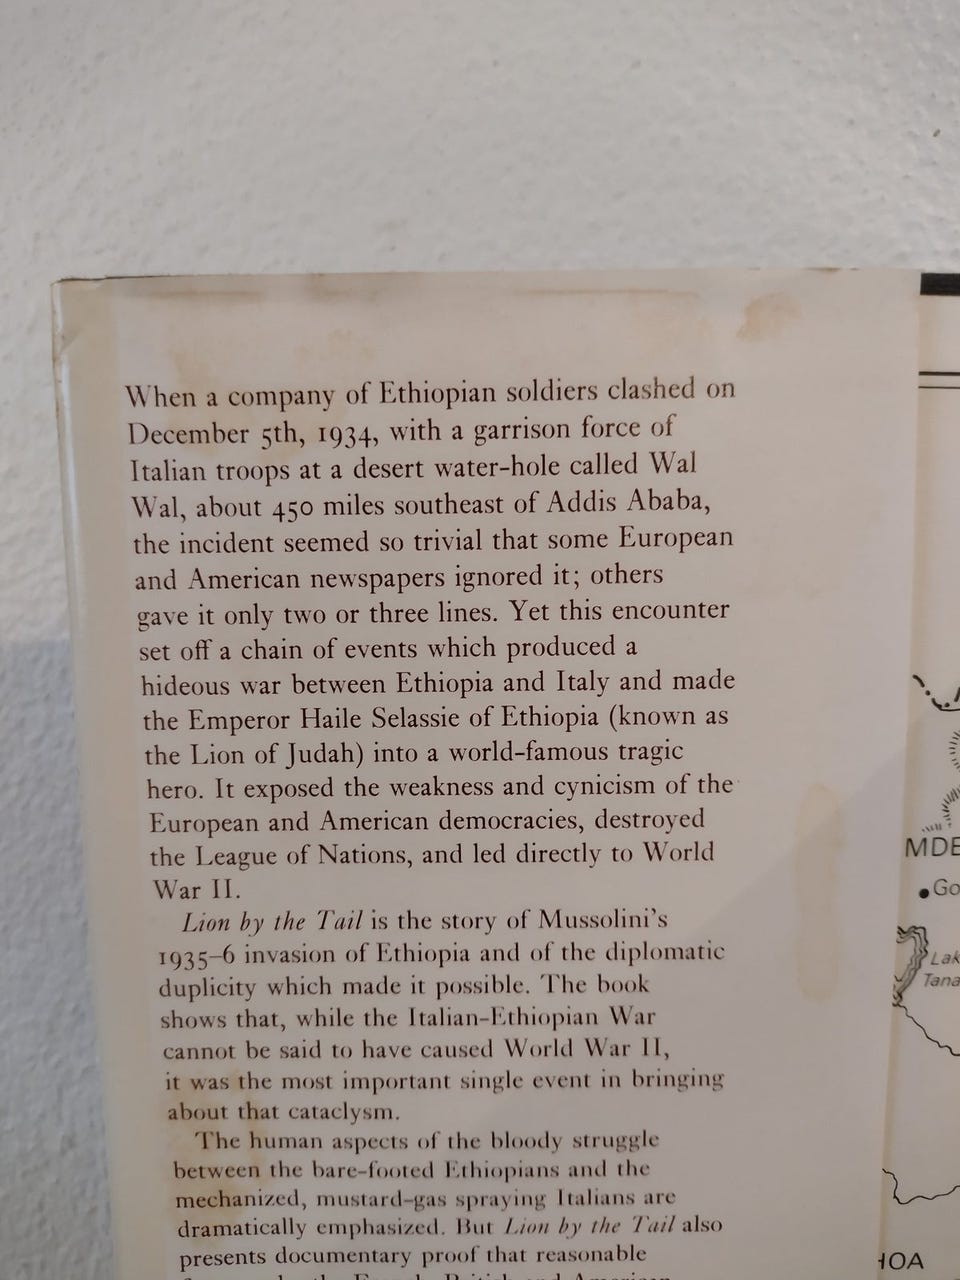 When a company of Ethiopian soldiers clashed on
December 5th, 1934, with a garrison force of
Italian troops at a desert water-hole called Wal
Wal, about 450 miles southeast of Addis Ababa,
the incident seemed so trivial that some European
and American newspapers ignored it; others
gave it only two or three lines. Yet this encounter
set off a chain of events which produced a
hideous war between Ethiopia and Italy and made
the Emperor Haile Selassie of Ethiopia (known as
the Lion of Judah) into a world-famous tragic
hero. It exposed the weakness and cynicism of the
European and American democracies, destroyed
the League of Nations, and led directly to World
War II.
Lion by the Tail is the story of Mussolini's
1935–6 invasion of Ethiopia and of the diplomatic
duplicity which made it possible. The book
shows that, while the Italian-Ethiopian War
cannot be said to have caused World War II,
it was the most important single event in bringing
about that cataclysm.
The human aspects of the bloody struggle
between the bare-footed Ethiopians and the
mechanized, mustard-gas spraying Italians are
dramatically emphasized. But Lion by the Tail also
presents documentary proof that reasonable
MDE
Go
Lak
Tana
HOA